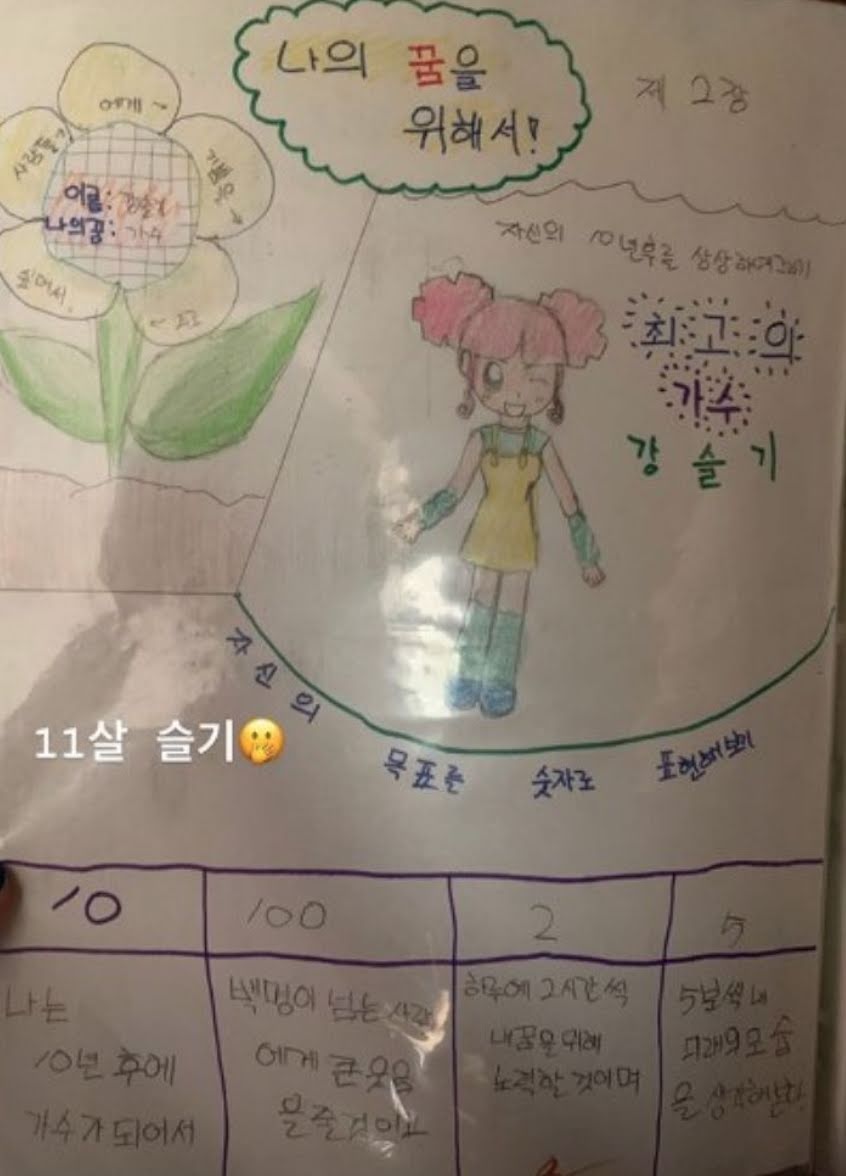 나의 꿈을
위해서!
제 2장
에게 →
사람들
이름: 강슬기
나의꿈: 가수
기쁨
주고
싶어서.
자신의 10년후를 상상하여그리기
최고의
가수
강슬기
11살 슬기🤭
자신의 목표를 숫자로 표현해보기
10
100
2
5
나는
10년 후에
가수가 되어서
백명이 넘는 사람
에게 큰웃음
을줄것이고
하루에 2시간씩
내꿈을 위해
노력할 것이며
5분씩 내
미래의모습
을 생각해본다.